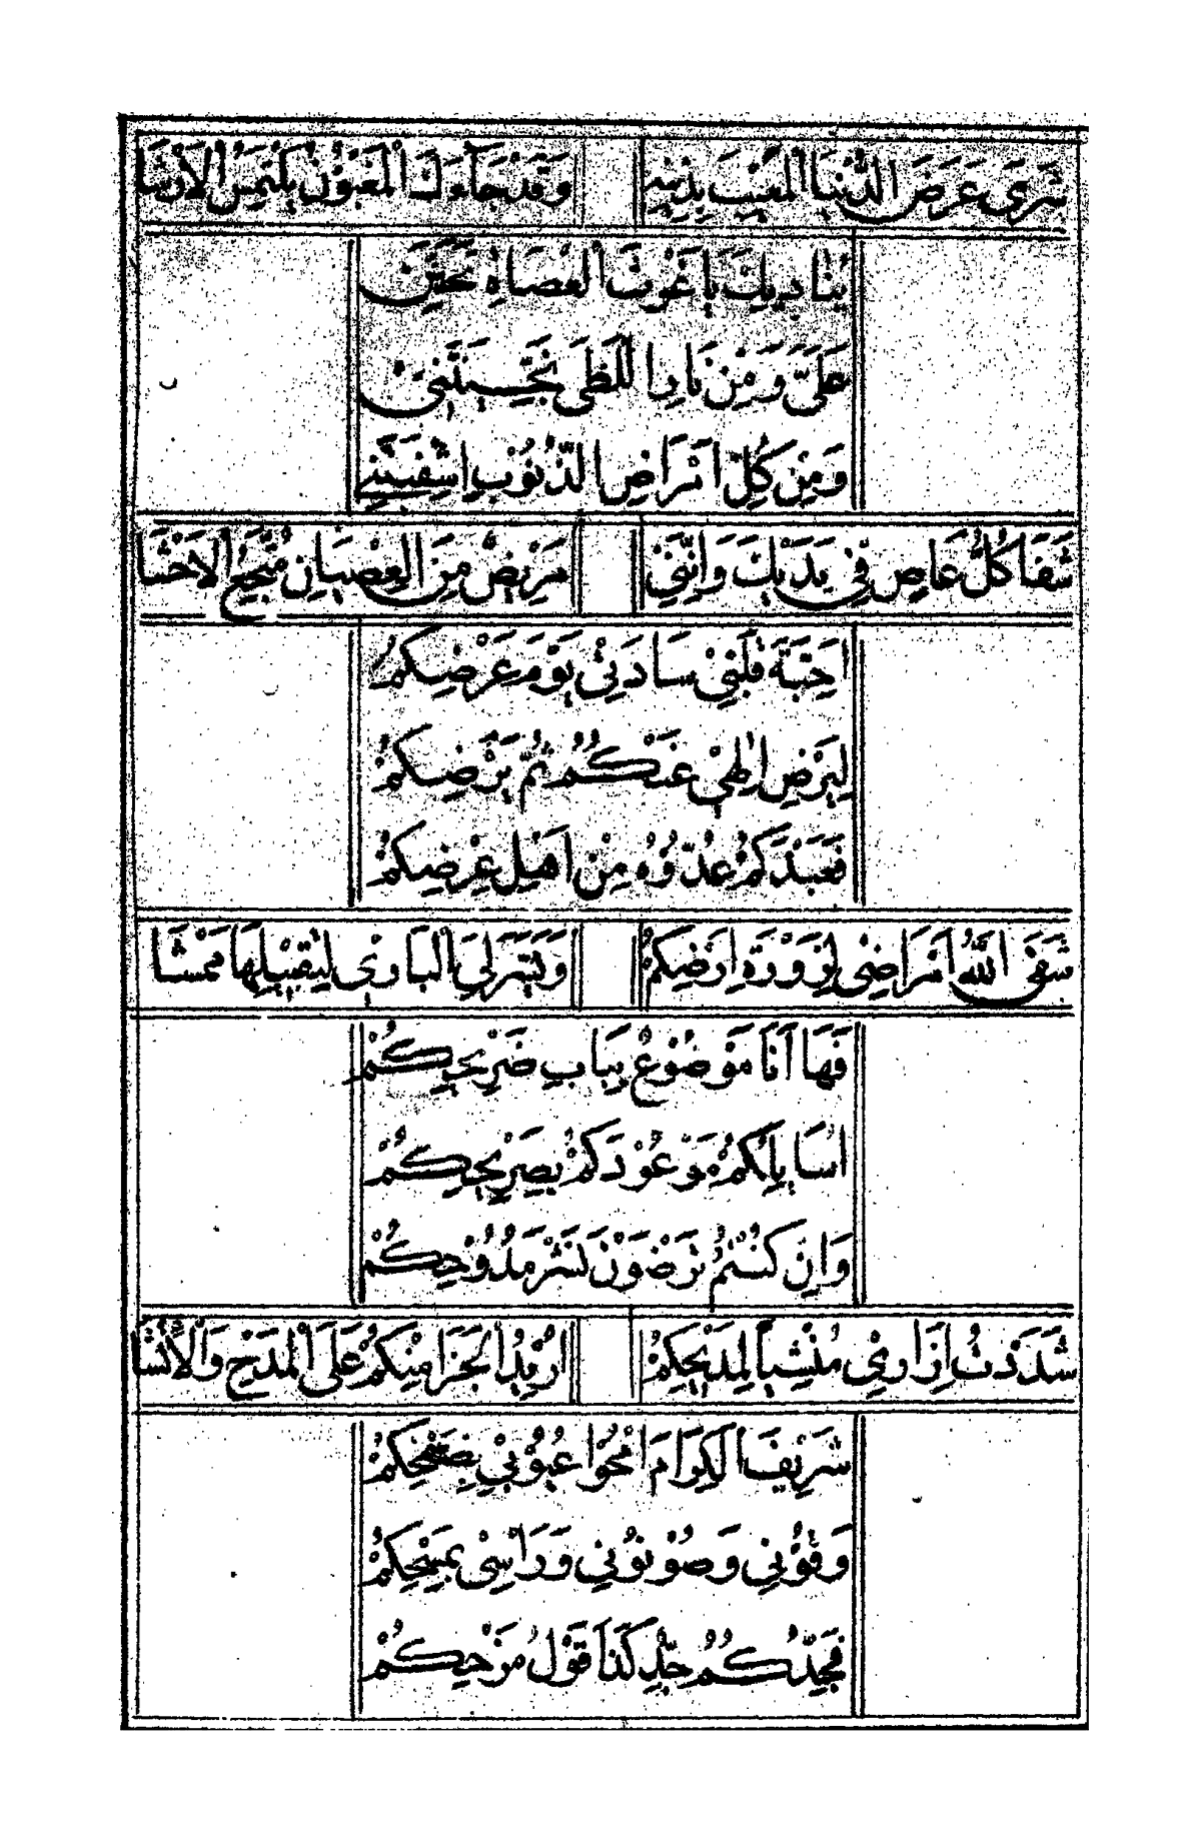 شَرَى عَرَضَ الدُّنْيَا الْمَعِيْبَ بِدِيْنِهِ وَقَدْ جَاءَكَ الْمَغْبُوْنُ يَلْتَمِسُ الْاَرْشَا
يُنَادِيْكَ يَا غَوْثَ الْعُصَاةِ تَحَنَّنَنْ
عَلَيَّ وَمِنْ نَارِ اللَّظَى نَجِّيَنَّنِيْ
وَمِنْ كُلِّ اَمْرَاضِ الذُّنُوْبِ اشْفِيَنَّنِيْ
شَفَا كُلِّ عَاصٍ فِيْ يَدَيْكَ وَاِنَّنِيْ مَرِيْضٌ مِنَ الْعِصْيَانِ مُتَّجِعُ الْاَحْشَا
اَحِبَّةَ قَلْبِيْ سَادَتِيْ يَوْمَ عَرْضِكُمْ
لِيَرْضَ اِلٰهِيْ عَنْكُمُ ثُمَّ يَرْضِكُمْ
فَعَبْدَكُمُ عُدُّوْهُ مِنْ اَهْلِ عِرْضِكُمْ
شَفَى اللّٰهُ اَمْرَاضِيْ لِزَوْرَةِ اَرْضِكُمْ وَيَسَّرَ لِيَ الْبَارِيْ لِتَقْبِيْلِهَا مَمْشَا
فَهَا اَنَا مَوْضُوْعٌ بِبَابِ ضَرِيْحِكُمْ
اُسَايِلُكُمْ مَوْعُوْدَكُمْ بِصَرِيْحِكُمْ
وَاِنْ كُنْتُمُ تَرْضَوْنَ نَشْرَ مَدُوْحِكُمْ
شَدَدْتُ اِزَارِيْ مُنْشِيًا لِمَدِيْحِكُمْ اُرِيْدُ الْجَزَا مِنْكُمْ عَلَى الْمَدْحِ وَالْاِنْشَا
شَرِيْفَ الْكِرَامِ امْحُوْا عُيُوْبِيْ بِصَفْحِكُمْ
وَقُوْنِيْ وَصُوْنُوْنِيْ وَرَاْسِيْ بِمَسْحِكُمْ
فَجِدُّكُمُ جِدٌّ كَذَا قَوْلُ مَزْحِكُمْ